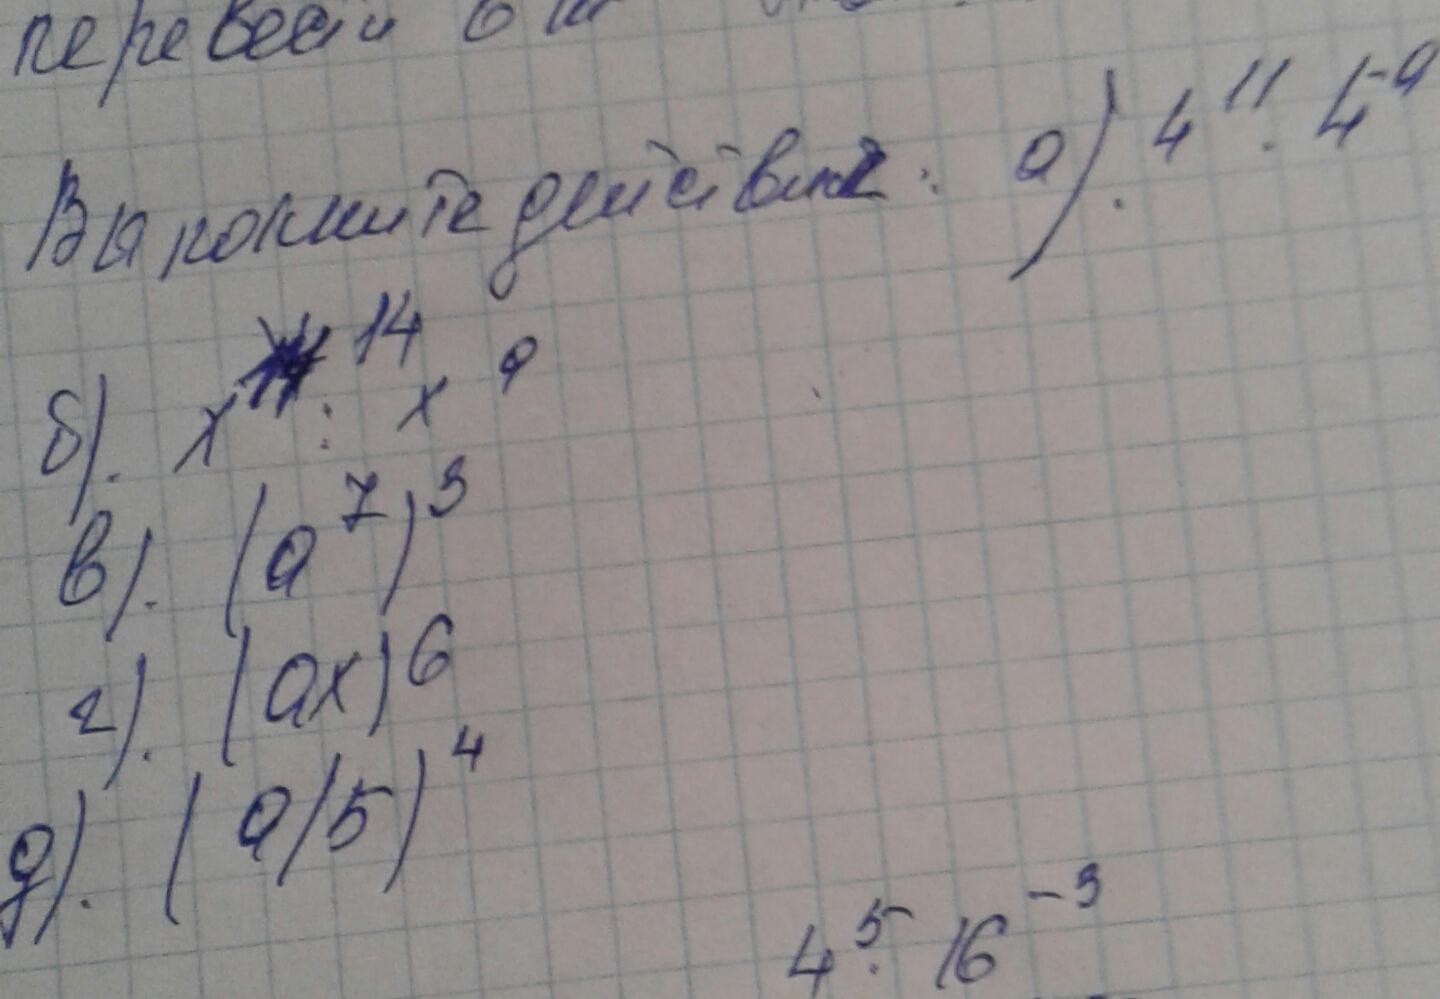 перевести в
Выполните действия: а). 4¹¹ · 4⁻⁹
б). x¹⁴ : x⁹
в). (a⁷)³
г). (ax)⁶
д). (a/5)⁴
4⁵ · 16⁻³